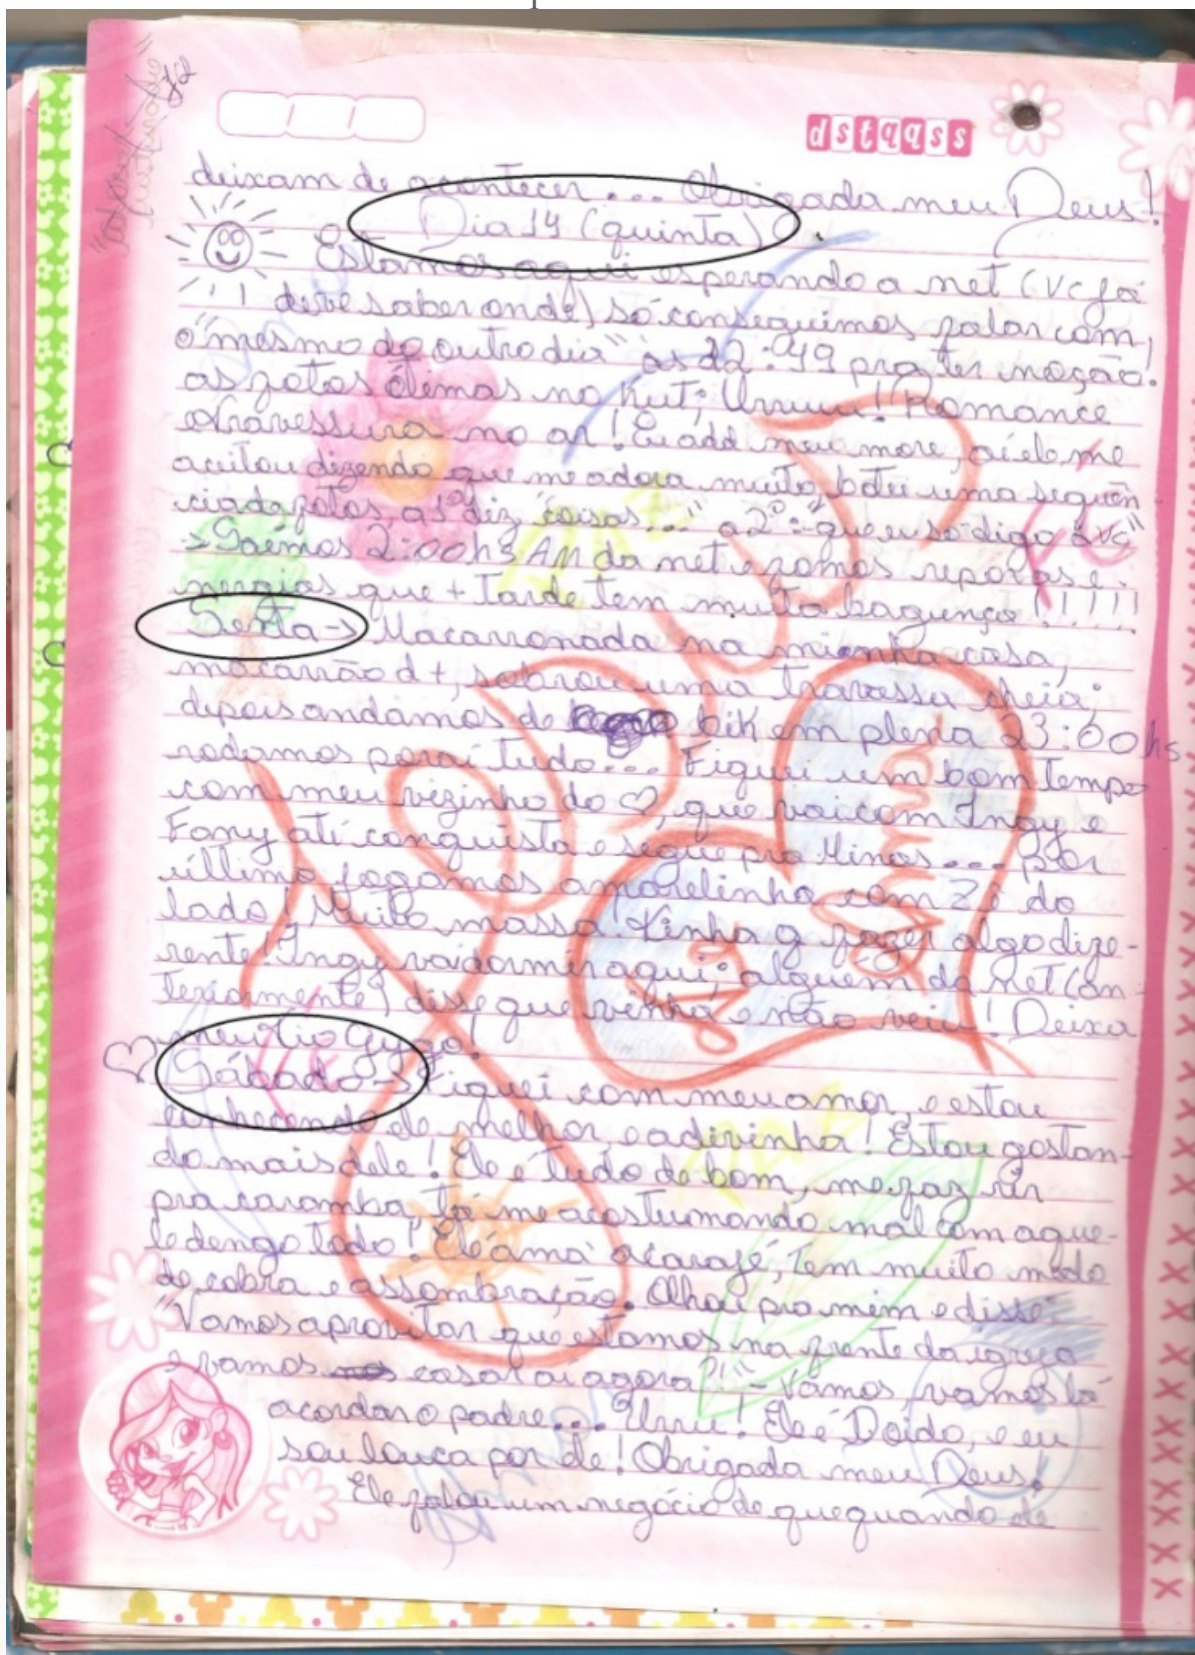 d s t q q s s
deixam de acontecer... Obrigada meu Deus!
Dia 14 (quinta)
Estamos aqui esperando a net (vc já
deve saber onde) só conseguimos falar com
o "mesmo do outro dia" às 12:49 pra ter
as fotos ótimas no kut; Uruuu! Romance
travessura no ar! Eu add meu more, aí ele me
aceitou dizendo que me adora muito, botei uma seqüên-
cia de fotos, a 1º diz "coisas..." a 2º: "que eu só digo à vc"
-> Saímos 2:00hs AM da net e fomos repor as e.
nergias que + tarde tem muita bagunça!!!!!
Sexta -> Macarronada na minha casa,
macarrão d+, sobrou uma travessa cheia;
depois andamos de bik em plena 23:00hs
rodamos por aí tudo... Fiquei um bom tempo
com meu vizinho do ♡, que vai com Ingy e
Fany até conquista e segue pra Minas... por
último jogamos amarelinha com Zé do
lado! Muito massa tinha q fazer algo dife-
rente! Ingy vai dormir aqui; alguem da net (an-
teriormente) disse que vinha e não veiu! Deixa
meu tio
♡ Sábado -> Fiquei com meu amor, e estou
conhecendo ele melhor e adivinha! Estou gostan-
do mais dele! Ele é tudo de bom, me faz rir
pra caramba, tá me acostumando mal com aque-
le dengo todo! Ele ama acarajé, tem muito medo
de cobra e assombração. Olhou pra mim e disse:
"Vamos aproveitar que estamos na frente da igreja
e vamos casar aí agora?!" - Vamos, vamos lá
acordar o padre... Uruu! Ele é Doido, e eu
sou louca por ele! Obrigada meu Deus.
Ele falou um negócio de que quando ele